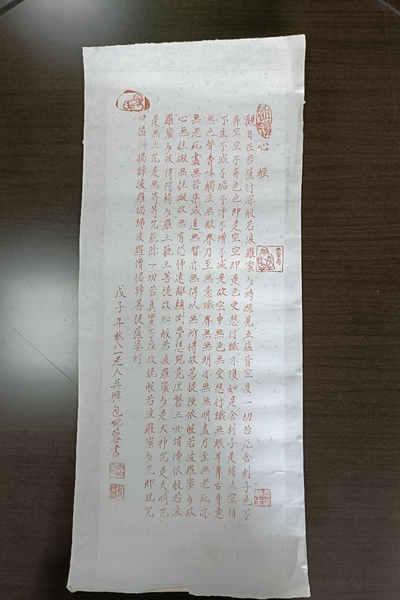 心經
觀自在菩薩行深般若波羅蜜多時照見五蘊皆空度一切苦厄舍利子色不
異空空不異色色即是空空即是色受想行識亦復如是舍利子是諸法空相
不生不滅不垢不淨不增不減是故空中無色無受想行識無眼耳鼻舌身意
無色聲香味觸法無眼界乃至無意識界無無明亦無無明盡乃至無老死亦
無老死盡無苦集滅道無智亦無得以無所得故菩提薩埵依般若波羅蜜多故
心無挂礙無挂礙故無有恐怖遠離顛倒夢想究竟涅槃三世諸佛依般若波
羅蜜多故得阿耨多羅三藐三菩提故知般若波羅蜜多是大神咒是大明咒
是無上咒是無等等咒能除一切苦真實不虛故說般若波羅蜜多咒即說咒
曰揭諦揭諦波羅揭諦波羅僧揭諦菩提薩婆訶
戊子年秋八一老人吳興包婉蓉書